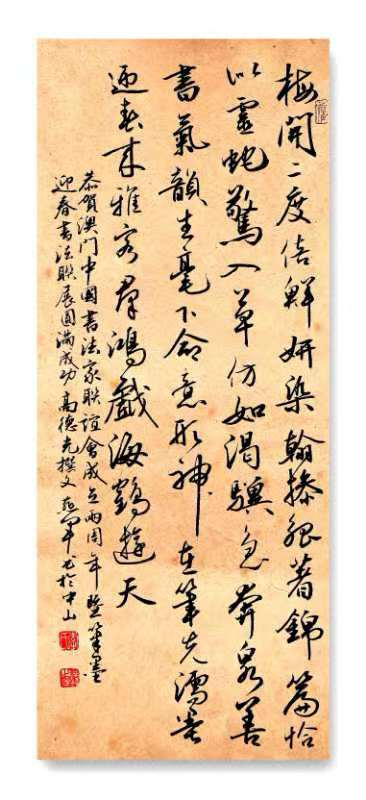 梅開二度倍鮮妍染翰摛能著錦篇恰
以靈蛇驚入草仿如渴驥急奔泉善
書氣韻生毫下命意形神在筆先濡墨
迎春來雅客群鴻戲海鶴遊天
恭賀澳门中國書法家联誼會成立兩周年暨筆墨
迎春書法联展圓満成功 高德光撰文 軍书於中山